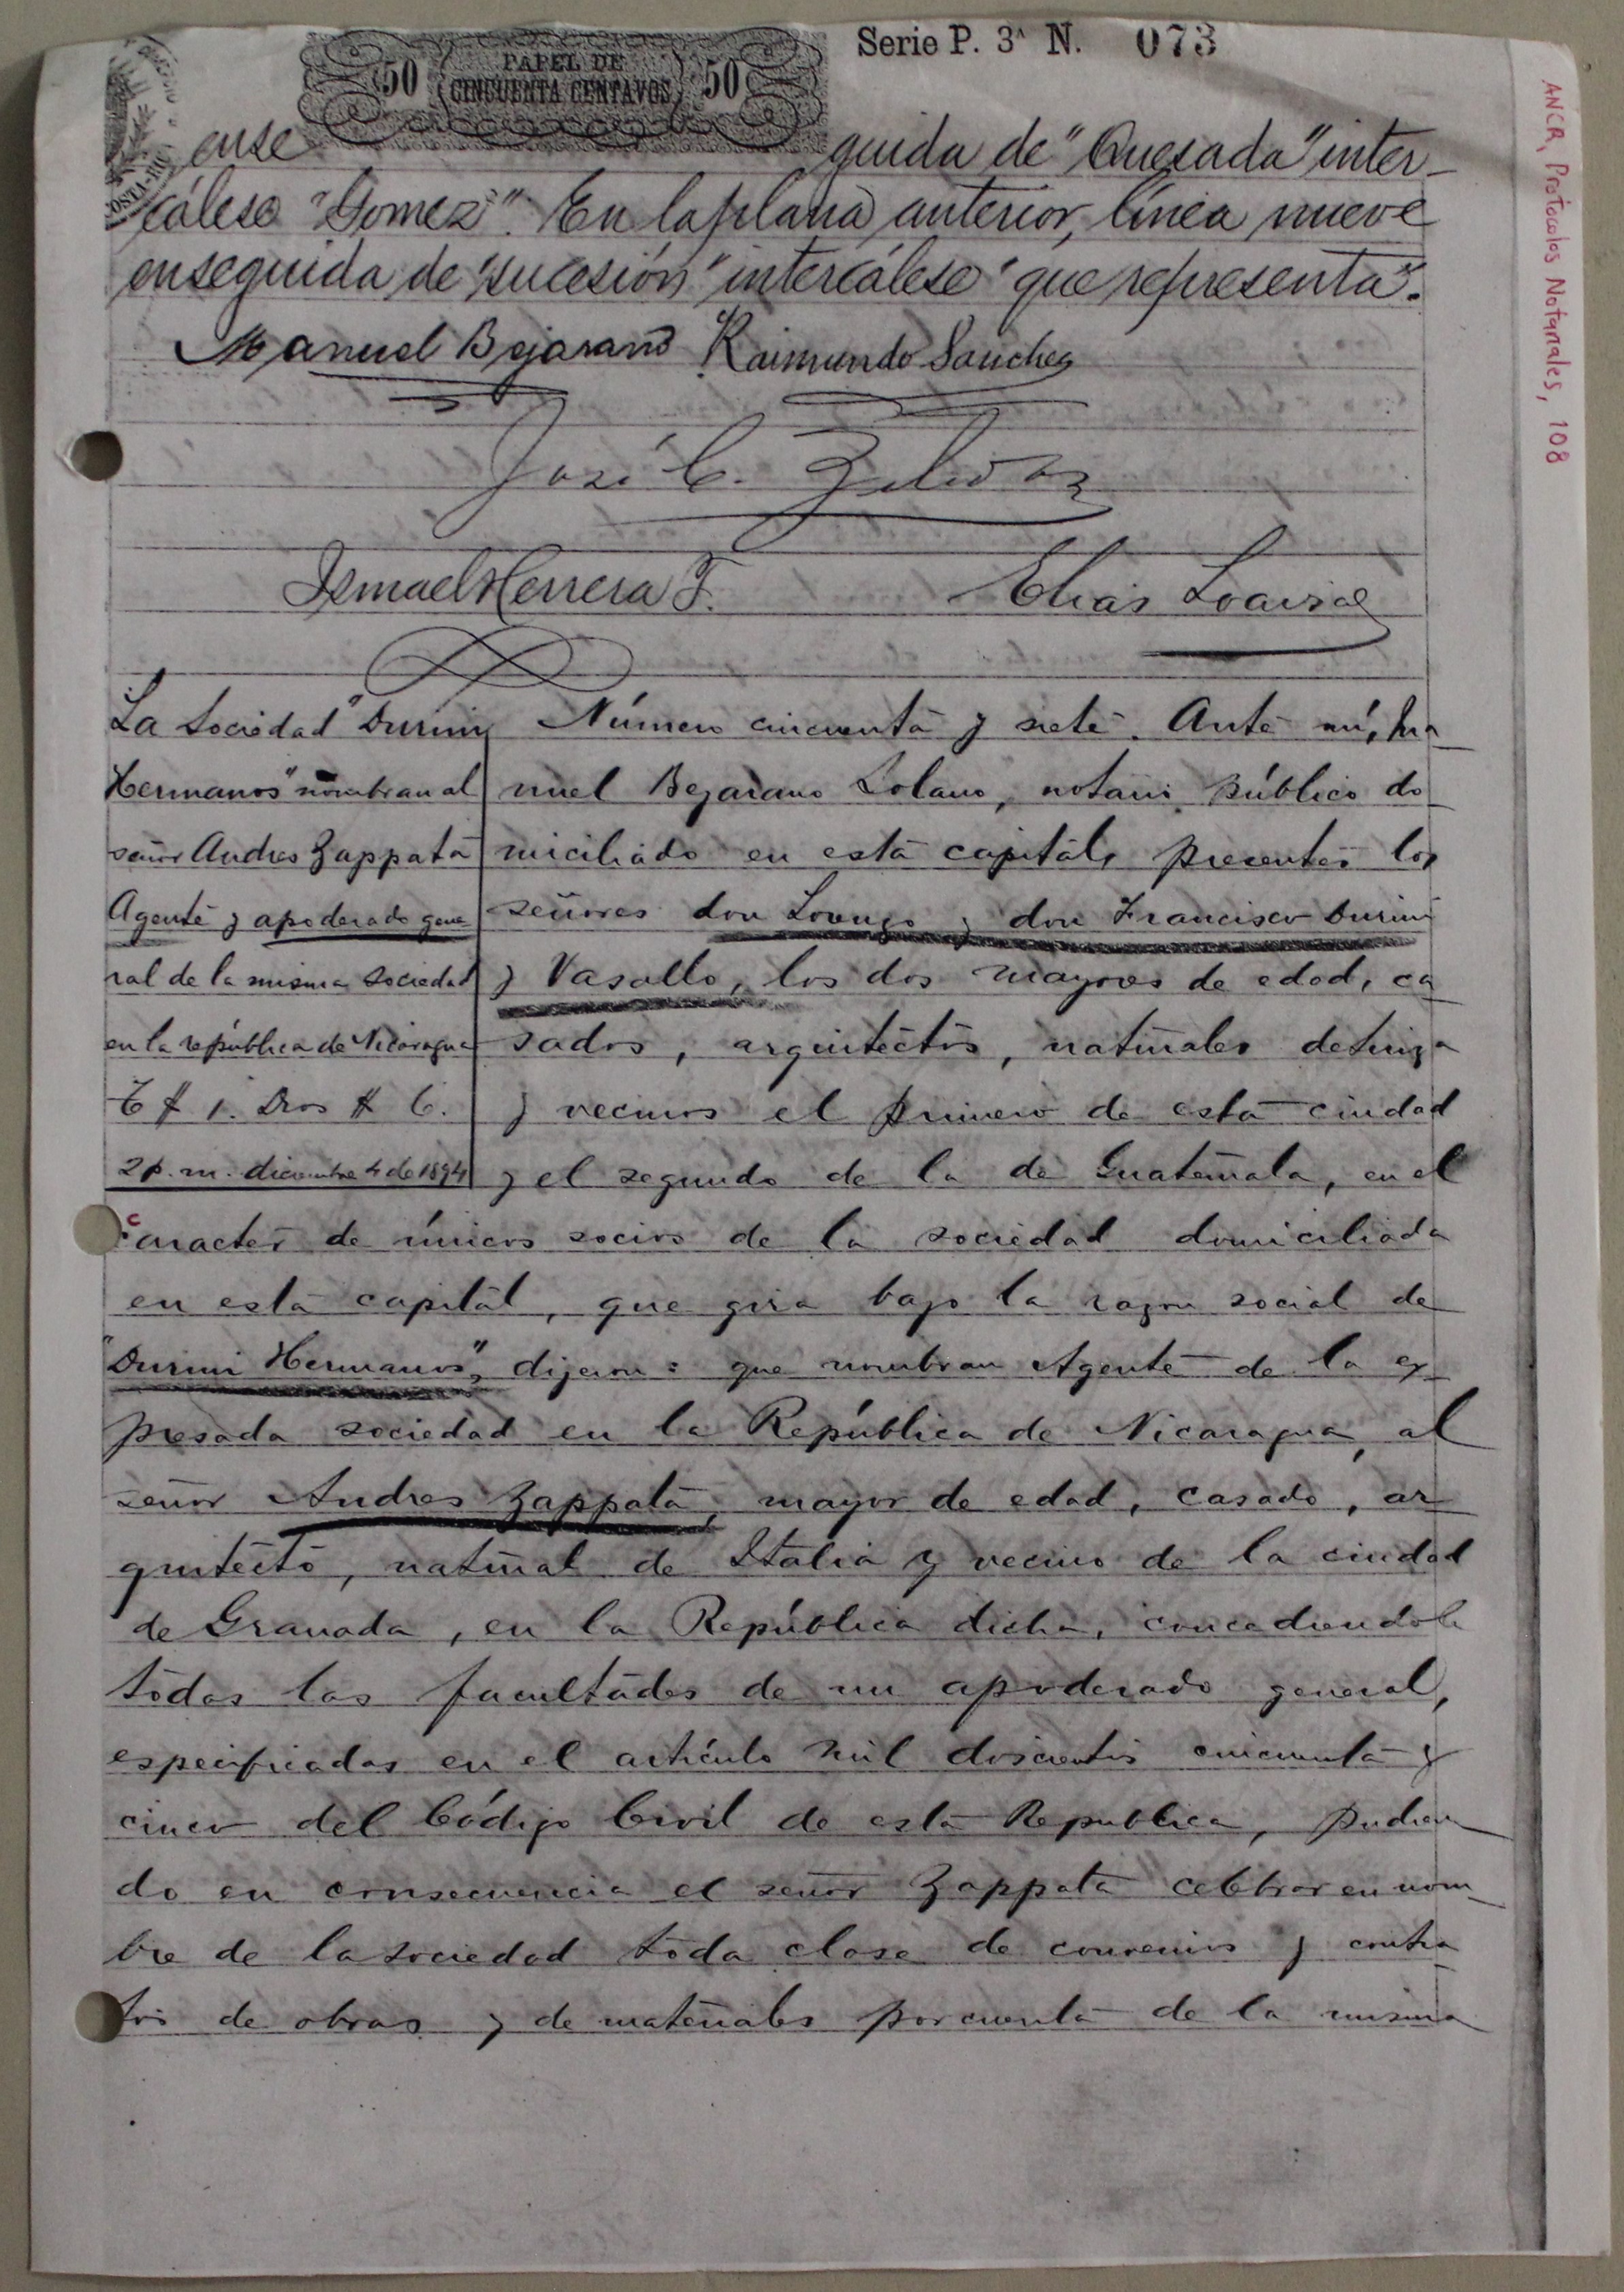 Serie P. 3ª N. 073
50 PAPEL DE CINCUENTA CENTAVOS 50
ense guida de "Quesada" inter-
cálese "Gomez". En la plana anterior, línea nueve
enseguida de "sucesión" intercálese "que representa".
Manuel Bejarano Raimundo Sanchez
José C. Zeledón
Ismael Herrera F. Elias Loaiza
La Sociedad "Durini
Hermanos" nombran al
señor Andres Zappata
Agente y apoderado gene
ral de la misma sociedad
en la república de Nicaragua
2 p. m. diciembre 4 de 1894
Número cincuenta y siete. Ante mí, Ma
nuel Bejarano Solano, notario público do
miciliado en esta capital, presentes los
señores don Lorenzo y don Francisco Durini
y Vasallo, los dos mayores de edad, ca
sados, arquitectos, naturales de Suiza
y vecinos el primero de esta ciudad
y el segundo de la de Guatemala, en el
caracter de únicos socios de la sociedad domiciliada
en esta capital, que gira bajo la razon social de
"Durini Hermanos", dijeron: que nombran Agente de la ex
presada sociedad en la República de Nicaragua, al
señor Andres Zappata, mayor de edad, casado, ar
quitecto, natural de Italia y vecino de la ciudad
de Granada, en la República dicha, concediendole
todas las facultades de un apoderado general,
especificadas en el artículo mil doscientos cincuenta y
cinco del Código Civil de esta Republica, pudien
do en consecuencia el señor Zappata celebrar en nom
bre de la sociedad toda clase de convenios y contra
tos de obras y de materiales por cuenta de la misma
ANCR, Protocolos Notariales, 108